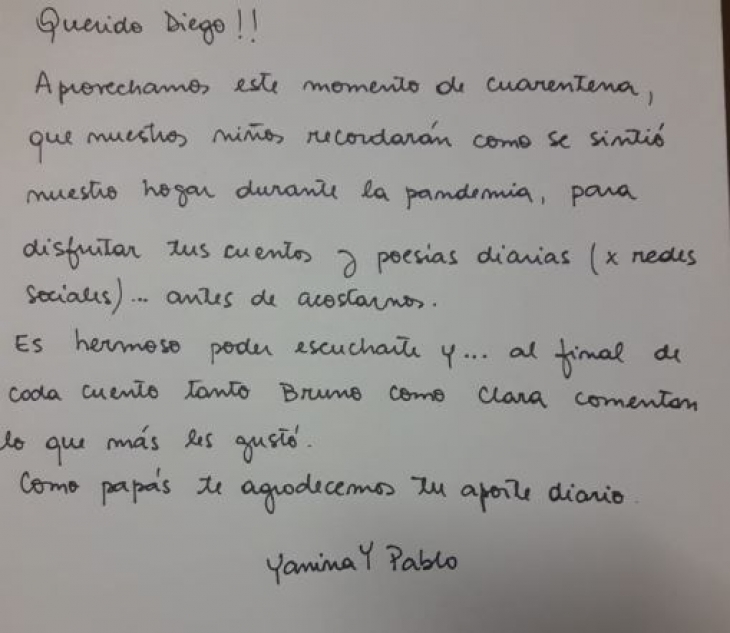 Querido Diego!!
Aprovechamos este momento de cuarentena,
que nuestros niños recordarán como se sintió
nuestro hogar durante la pandemia, para
disfrutar tus cuentos y poesías diarias (x redes
sociales)... antes de acostarnos.
Es hermoso poder escucharte y... al final de
cada cuento tanto Bruno como Clara comentan
lo que más les gustó.
Como papás te agradecemos tu aporte diario.
Yanina Y Pablo